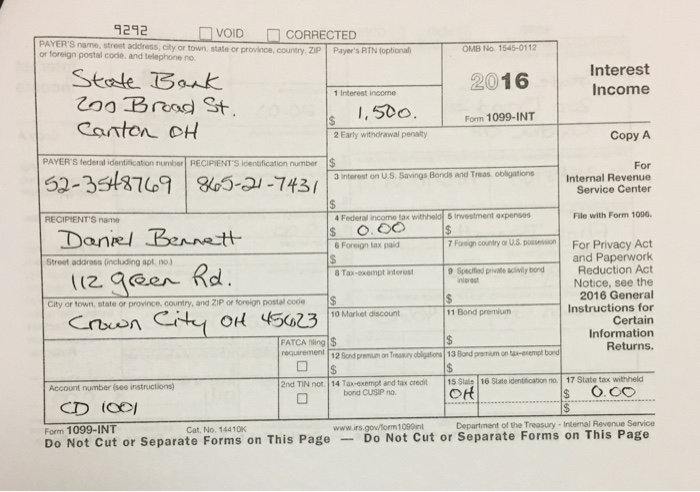 9292 VOID CORRECTED
PAYER'S name, street address, city or town, state or province, country, ZIP
or foreign postal code, and telephone no.
State Bank
200 Broad St.
Canton OH
Payer's RTN (optional)
OMB No. 1545-0112
2016
Form 1099-INT
Interest
Income
1 Interest income
$ 1,500.
2 Early withdrawal penalty
$
Copy A
PAYER'S federal identification number
52-3548769
RECIPIENT'S identification number
865-21-7431
3 Interest on U.S. Savings Bonds and Treas. obligations
$
For
Internal Revenue
Service Center
File with Form 1096.
RECIPIENT'S name
Daniel Bennett
4 Federal income tax withheld
$ 0.00
5 Investment expenses
$
6 Foreign tax paid
$
7 Foreign country or U.S. possession
Street address (including apt. no.)
112 green Rd.
8 Tax-exempt interest
$
9 Specified private activity bond
interest
$
City or town, state or province, country, and ZIP or foreign postal code
Crown City OH 45623
10 Market discount
$
11 Bond premium
$
For Privacy Act
and Paperwork
Reduction Act
Notice, see the
2016 General
Instructions for
Certain
Information
Returns.
FATCA filing
requirement
12 Bond premium on Treasury obligations
$
13 Bond premium on tax-exempt bond
$
Account number (see instructions)
CD 1001
2nd TIN not.
14 Tax-exempt and tax credit
bond CUSIP no.
15 State
OH
16 State identification no.
17 State tax withheld
$ 0.00
$
Form 1099-INT
Cat. No. 14410K
www.irs.gov/form1099int
Department of the Treasury - Internal Revenue Service
Do Not Cut or Separate Forms on This Page — Do Not Cut or Separate Forms on This Page